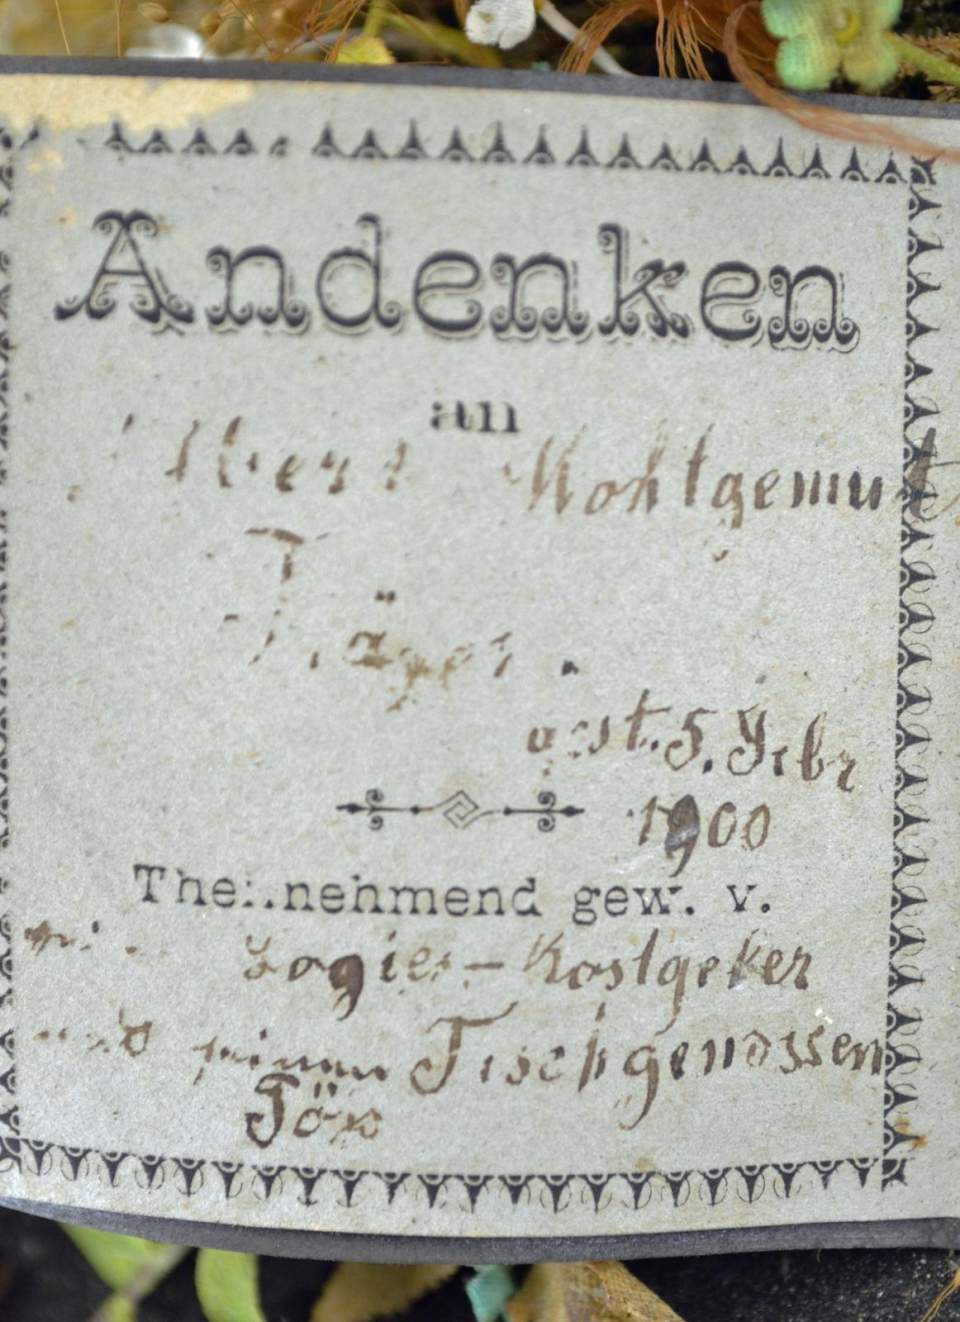 Andenken
an
Albert Wohlgemut
Jäger.
gest. 5. Febr
1900
Theilnehmend gew. v.
Logies-Kostgeber
und seinen Tischgenossen
Töss